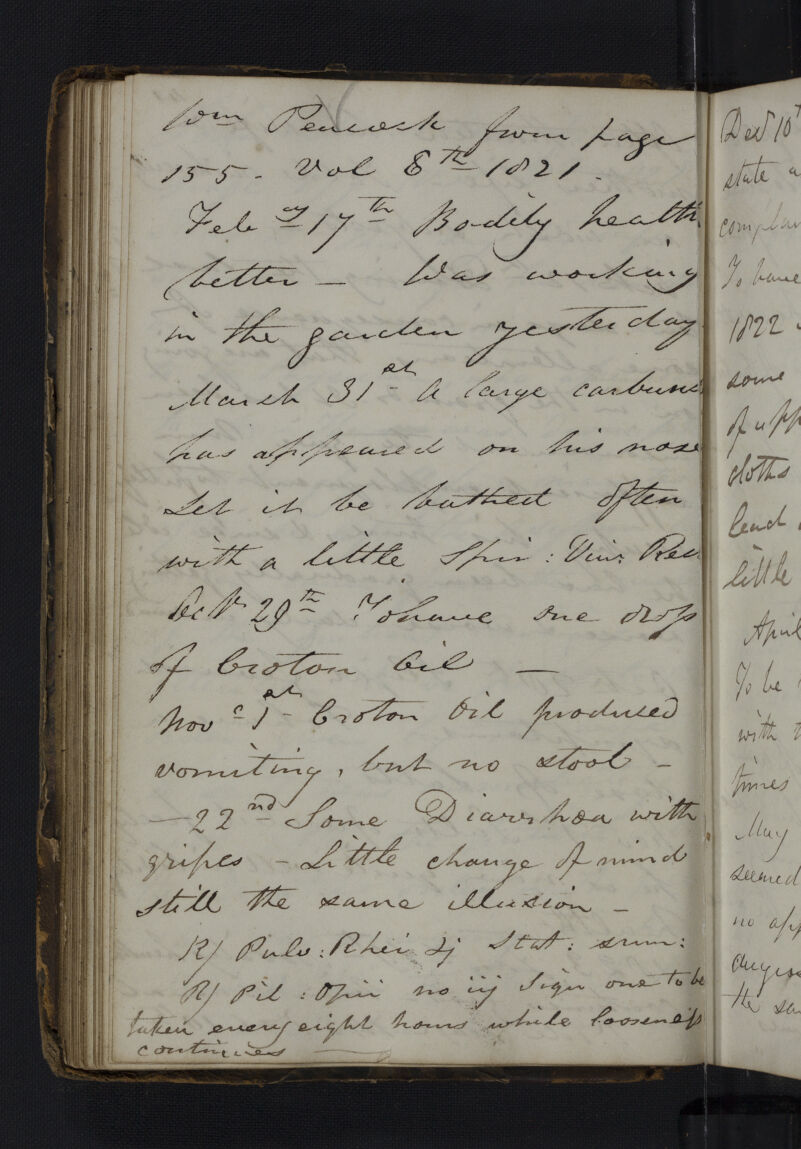 Wm Peacock from page
155 - Vol 8th 1821.
Feby 17th Bodily health
better - Was working
in the garden yesterday
March 31st A large carbunc
has appeared on his nose
Let it be bathed often
with a little Spir: Vini: Rec
Octr 29th To have one drop
of Croton Oil -
Nov 1st Croton Oil produced
vomiting, but no stool -
- 22nd Some Diarrhœa with
gripes - Little change of mind
still the same illusion -
R/ Pulv: Rhei ʒj Stat: sum:
R/ Pil: Opii no iij Sign one to be
taken every eight hours while looseness
continues
Decr 10t
state
To have
1822
some
of app
cloths
lead
little
April
To be
with t
times
May
seemed
no app
the sa